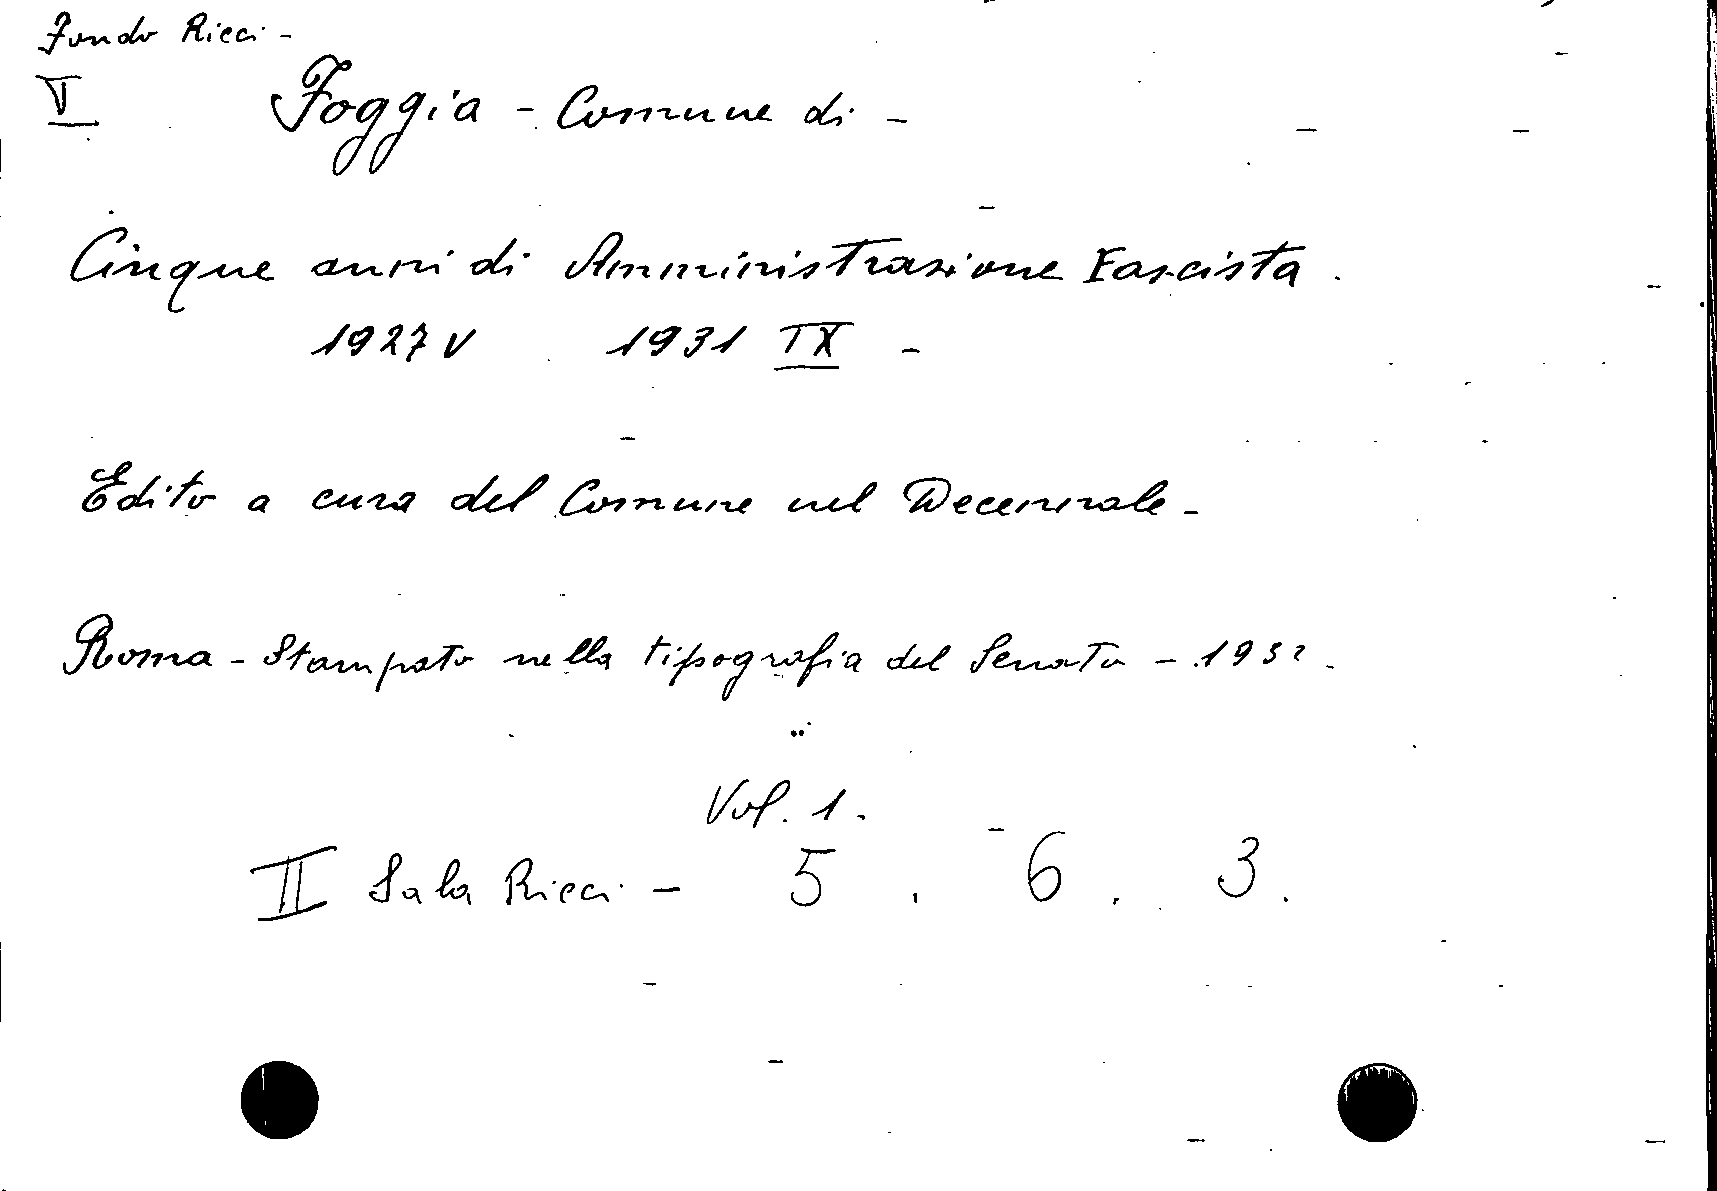 Fondo Ricci -
V Foggia - Comune di -
Cinque anni di Amministrazione Fascista.
1927 V 1931 IX -
Edito a cura del Comune nel Decennale -
Roma - Stampato nella tipografia del Senato - 1932 -
Vol. 1.
II Sala Ricci - 5 . 6 . 3 .